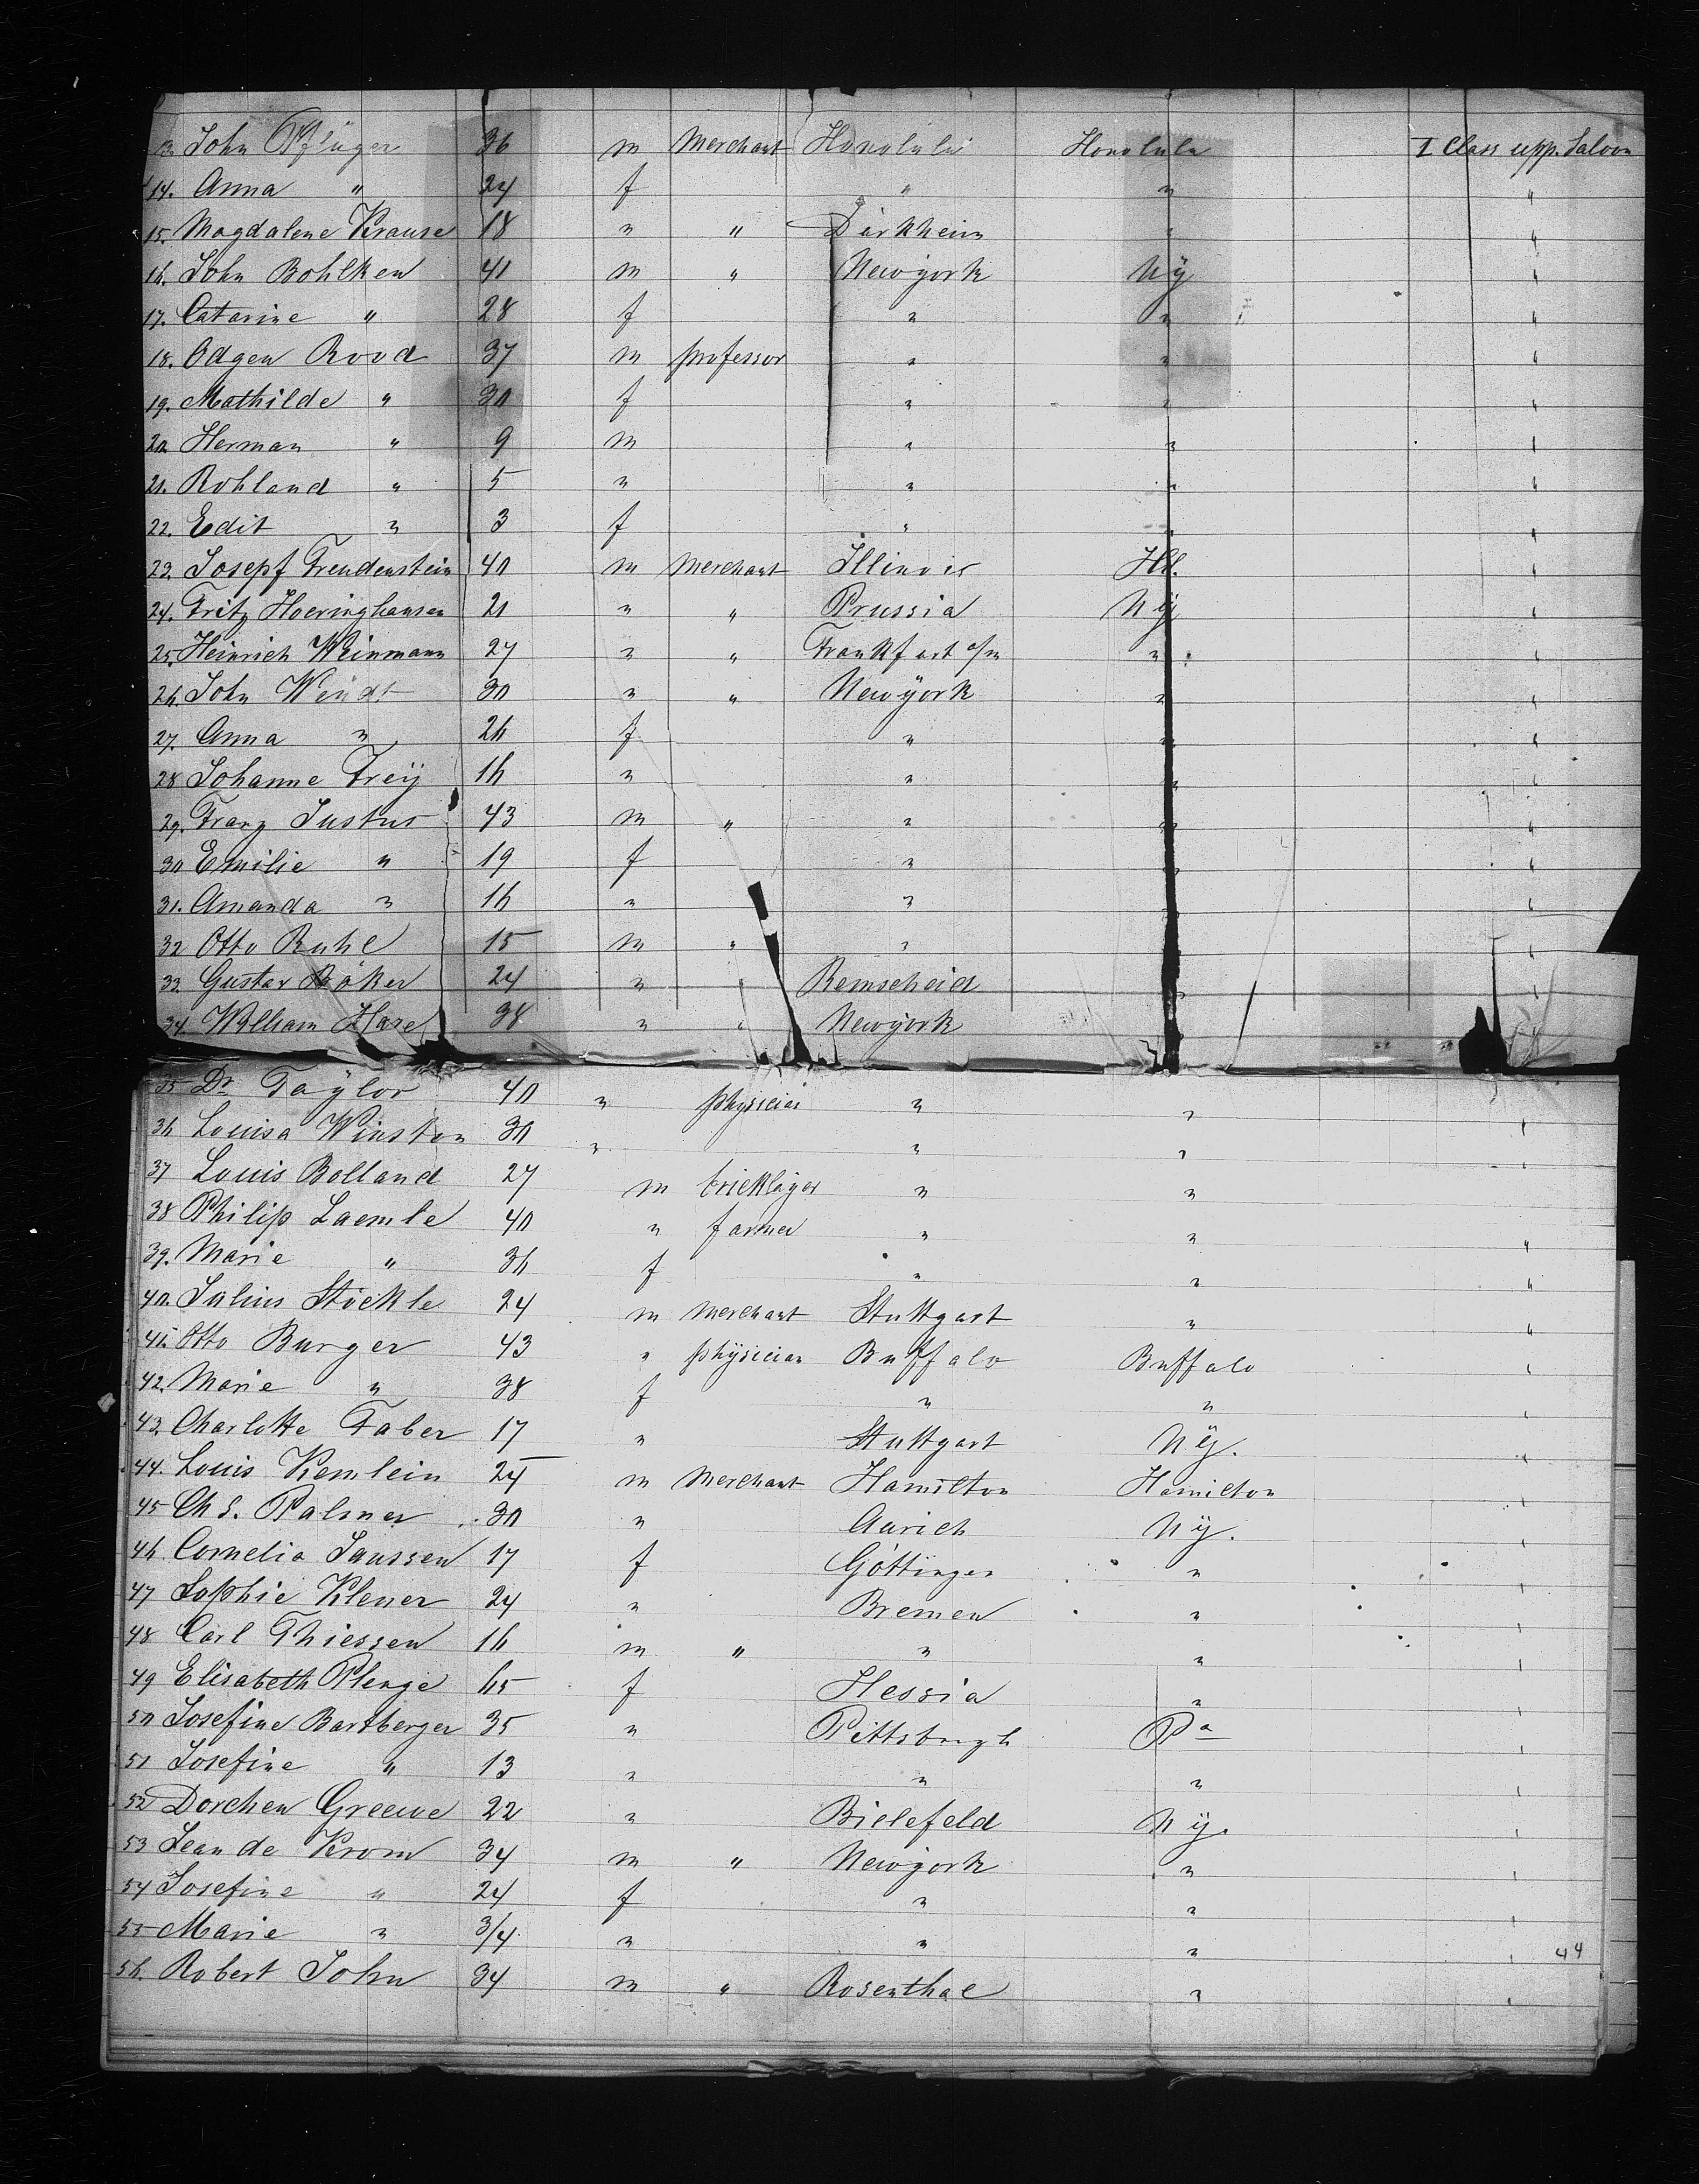 13. John Pflüger 36 m Merchant Honolulu Honolulu I Class upp. Saloon
14. Anna " 24 f " " "
15. Magdalene Krause 18 " " Dirkheim " "
16. John Bohlken 41 m " Newyork Ny "
17. Catarine " 28 f " " "
18. Odgen Rood 37 m professor " " "
19. Mathilde " 30 f " " "
20. Herman " 9 m " " "
21. Rohland " 5 " " " "
22. Edit " 3 f " " "
23. Josepf Freudenstein 40 m Merchant Illinois Ill. "
24. Fritz Hoeringhausen 21 " " Prussia Ny "
25. Heinrich Weinmann 27 " " Frankfurt a/m " "
26. John Wendt 30 " " Newyork " "
27. Anna " 26 f " " "
28 Johanne Frey 16 " " " "
29. Franz Justus 43 m " " " "
30 Emilie " 19 f " " "
31. Amanda " 16 " " " "
32 Otto Ruhl 15 m " " " "
33 Gustav Böker 24 " " Remscheid " "
34. William Hase 38 " " Newyork
35 Dr. Taylor 40 " physician " " "
36 Louisa Winston 30 " " " "
37 Louis Bolland 27 m bricklayer " "
38 Philip Laemle 40 " farmer " " "
39. Marie " 36 f " " "
40. Julius Stöckle 24 m Merchant Stuttgart " "
41. Otto Burger 43 " physician Buffalo Buffalo "
42. Marie " 38 f " " "
43. Charlotte Faber 17 " Stuttgart Ny. "
44. Louis Kemlein 24 m Merchant Hamilton Hamilton "
45 Chs. Palmer 30 " Aurich Ny. "
46 Cornelia Janssen 17 f Göttingen " "
47 Sophie Klener 24 " Bremen " "
48 Carl Thiessen 16 m " " " "
49 Elisabeth Plenge 65 f Hessia " "
50 Josefine Bartberger 35 " Pittsburgh Pa "
51 Josefine " 13 " " " "
52 Dorchen Greeve 22 " Bielefeld Ny. "
53 Jean de Krom 34 m " Newyork " "
54 Josefine " 24 f " " "
55 Marie " 3/4 " " " "
44
56. Robert John 34 m " Rosenthal " "